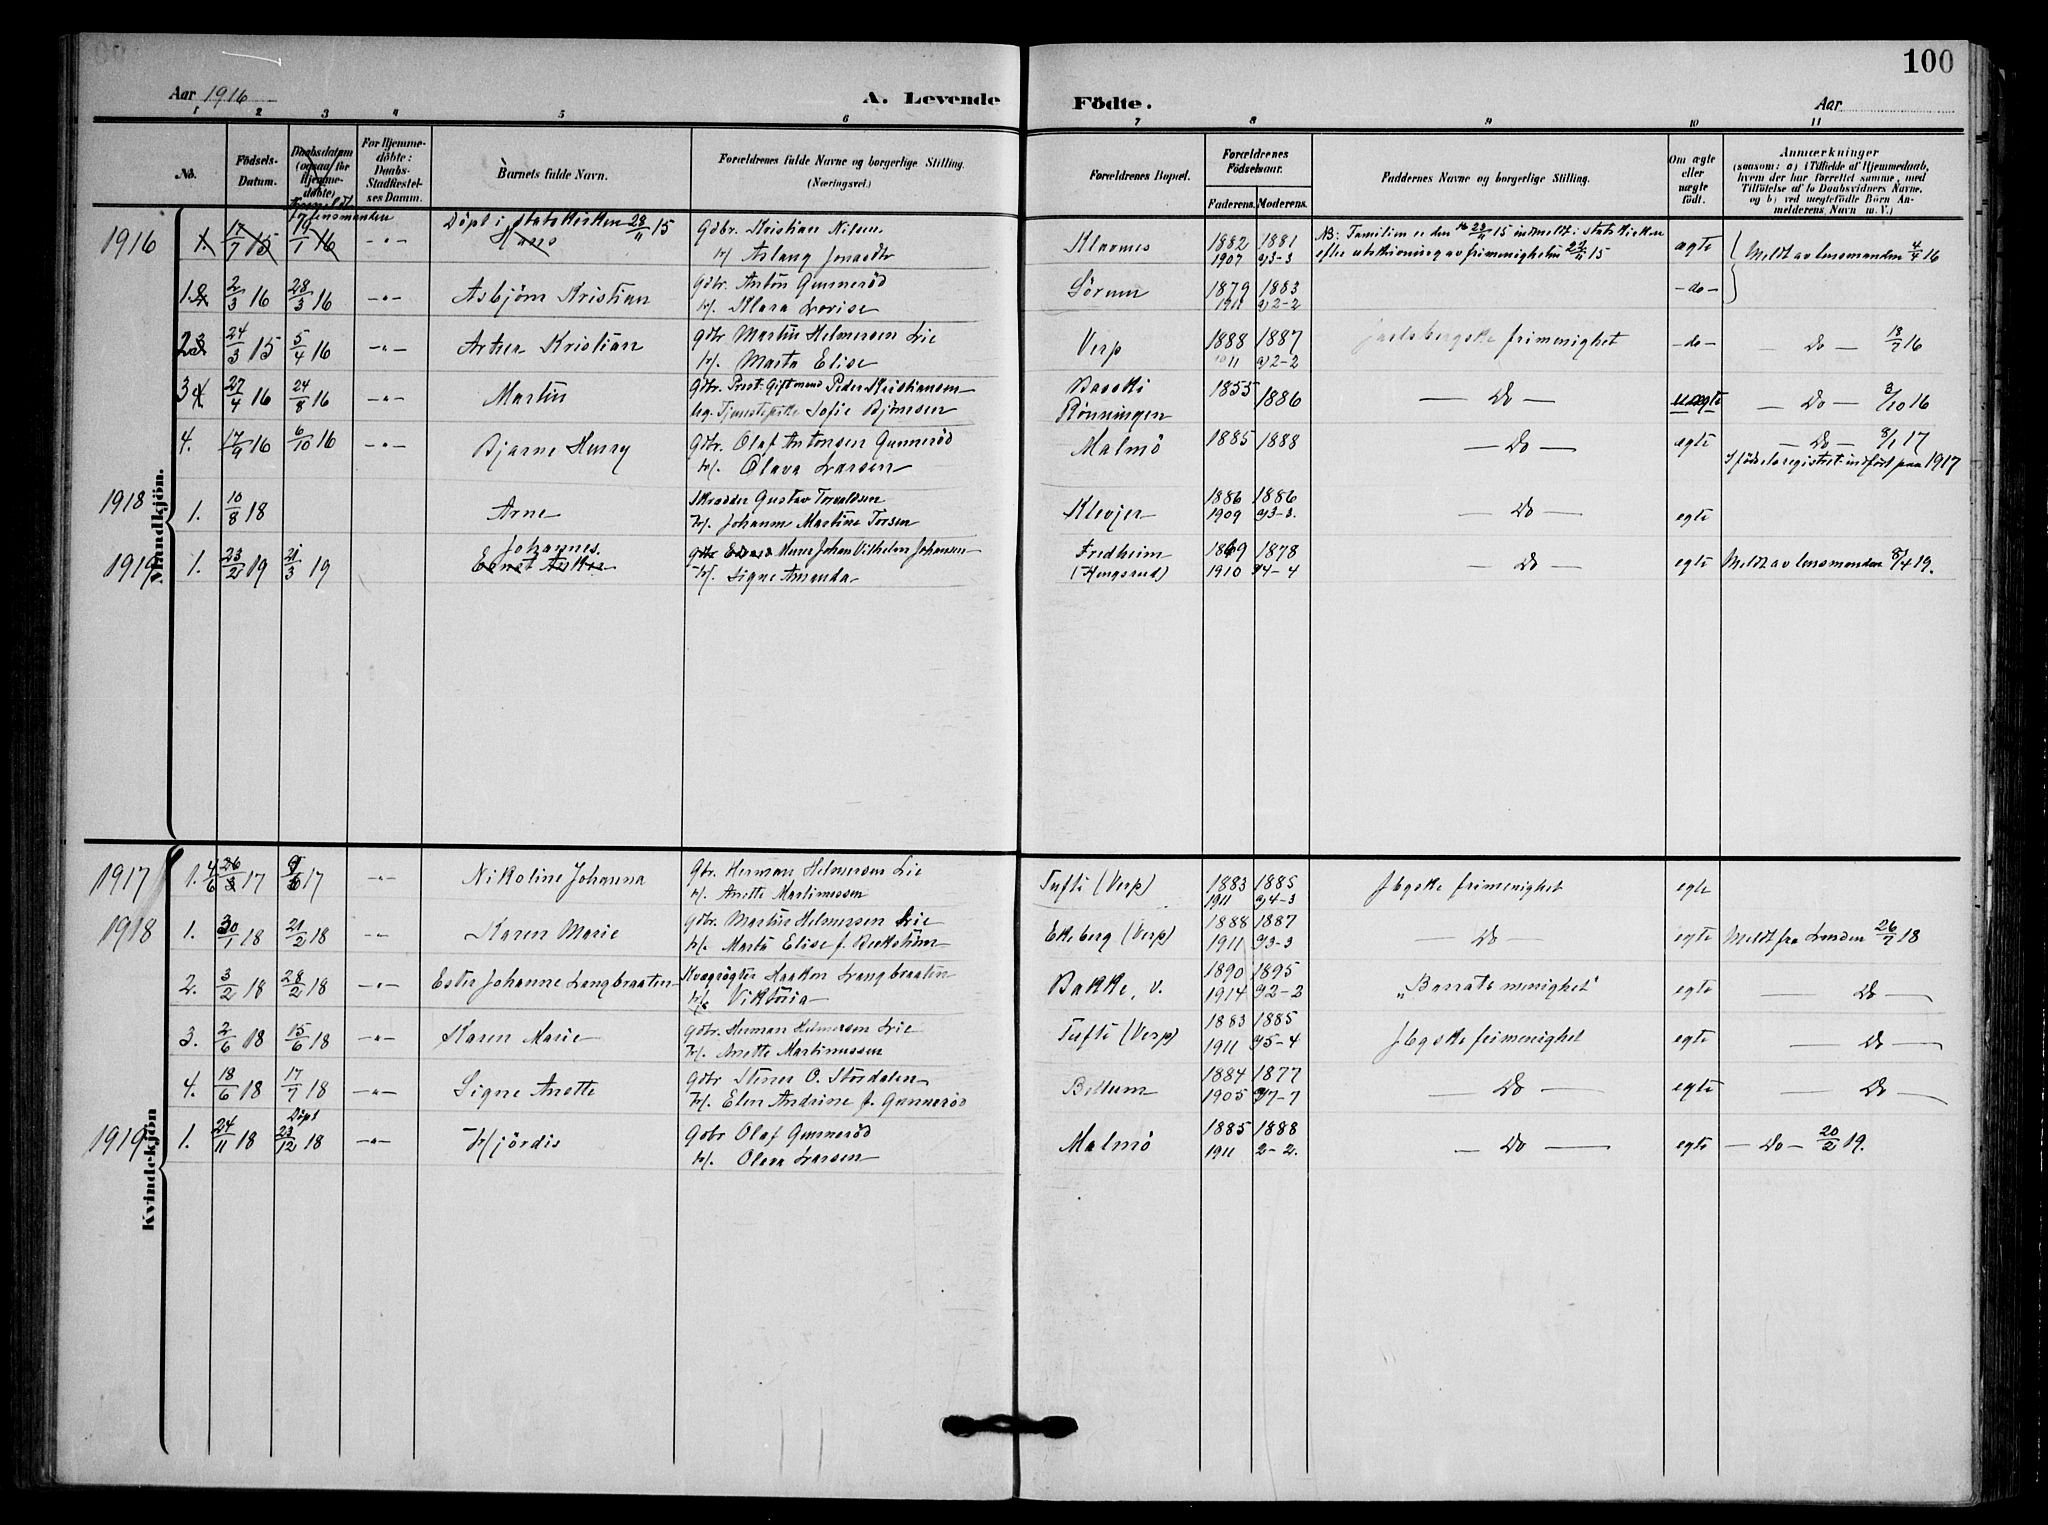 100
Aar 1916
A. Levende Födte.
Aar
1 2 3 4 5 6 7 8 9 10 11
No.
Födsels-Datum.
Daabsdatum (ogsaa for Hjemme-døbte)
For Hjemme-döbte: Daabs-Stadfæstel-ses Datum.
Barnets fulde Navn.
Forældrenes fulde Navne og borgerlige Stilling. (Næringsvei.)
Forældrenes Bopæl.
Forældrenes Födselsaar.
Faderens. Moderens.
Faddernes Navne og borgerlige Stilling.
Om ægte eller uægte födt.
Anmærkninger
(saasom: a) i Tilfælde af Hjemmedaab, hvem der har forrettet samme, med Tilföielse af to Daabsvidners Navne, og b) ved uægtefödte Börn An-melderens Navn m. V.)
Mandkjön.
1916 1. 17/7 15 19/1 16 -"- Döpt i statskirken 28/11 15 Hans Gdbr. Kristian Nilsen
H/ Aslaug Jonasdtr Klarnes 1882 1881
1907 93-3 NB: Familien er den 23/11 15 indmeldt i statskirken
efter utskrivning av frimenigheten 22/11 15 ægte Meldt av lensmanden 4/4 16
1 2/3 16 28/3 16 -"- Asbjørn Kristian Gdbr. Anton Gunnerød
H/. Klara Lovise Sörum 1879 1883
1911 92-2 -do-
2 24/3 15 5/4 16 -"- Artur Kristian Gdbr Martin Helmersen Lie
H/. Marta Elise Verp 1888 1887
1911 92-2 Jarlsbergske frimenighet -do- - Do - 18/7 16
3 27/4 16 24/8 16 -"- Martin Gdbr. Prest: Gift mand Peder Kristiansen
og Tjenestepike Sofie Bjönesen Rönningen 1855 1886 - Do - uægte - Do - 3/10 16
4. 17/9 16 6/10 16 -"- Bjarne Henry Gdbr. Olaf Antonsen Gunneröd
H/. Olava Larsen Malmö 1885 1888 - Do - egte - Do - 8/1 17
I födselsregistret indfört paa 1917
1918 1. 10/8 18 Arne Skrædder Gustav Torvaldsen
H/. Johanne Martine Torsen Klevjer 1886 1886
1909 93-3. - Do - egte
1919 1. 23/2 19 21/3 19 Johannes
Murer Johan Vilhelm Johansen
H/. Signe Amanda Fredheim
(Kongsrud) 1869 1878
1910 94-4 - Do - egte Meldt av lensmanden 8/4 19.
Kvindekjön
1917 1. 4/6 26/3 17 17 -"- Nikoline Johanna Gbr. Herman Helmersen Lie
H/. Anette Martinussen Tufti (Verp) 1883 1885
1911 94-3 Jbgske frimenighet egte
1918 1. 30/1 18 21/2 18 -"- Karen Marie Gdbr. Martin Helmersen Lie
H/. Marta Elise f. Bekström Ekeberg (Verp) 1888 1887
1911 93-3 - Do - egte Meldt fra Lensden 26/7 18
2. 3/2 18 28/2 18 -"- Ester Johanne Langbraaten Kvægrögter Haakon Langbraaten
H/. Viktoria Bakke, v. 1890 1895
1914 92-2 „Barrats menighet" egte - Do -
3. 2/6 18 15/6 18 -"- Karen Marie Gdbr. Herman Helmersen Lie
H/. Anette Martinussen Tufti (Verp) 1883 1885
1911 95-4 Jbgske frimenighet egte - Do -
4. 18/6 18 17/7 18 -"- Signe Anette Gdbr Stener O. Stordalen
H/. Elen Andrine f. Gunneröd Bellum 1884 1877
1905 97-7 - Do - egte - Do -
1919 1. 24/11 18 Döpt 23/12 18 -"- Hjördis Gdbr. Olaf Gunneröd
H/. Olava Larsen Malmö 1885 1888
1911 2-2. - Do - egte - Do - 20/2 19.